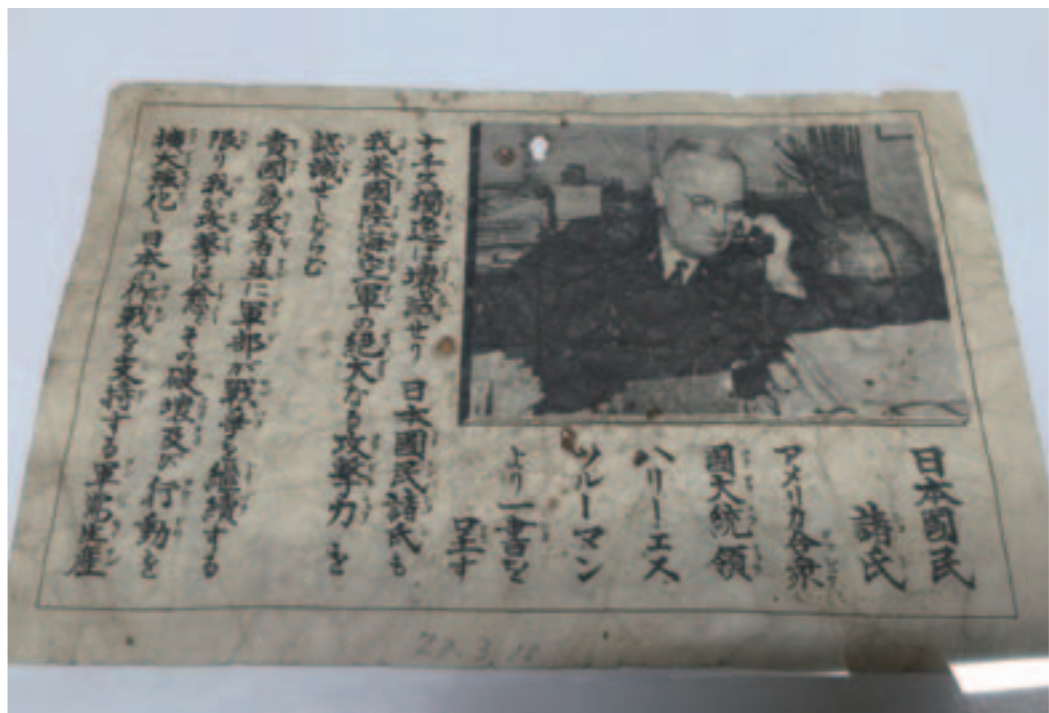 日本國民
諸氏
アメリカ合衆
國大統領
ハリーエス
ツルーマン
より一書を
呈す
ナチス獨逸は壊滅せり 日本國民諸氏も
我米國陸海空軍の絶大なる攻撃力を
認識せしならむ
貴國為政者並に軍部が戦争を継續する
限り我が攻撃は愈々その破壊及び行動を
擴大強化し日本の作戦を支持する軍需生産